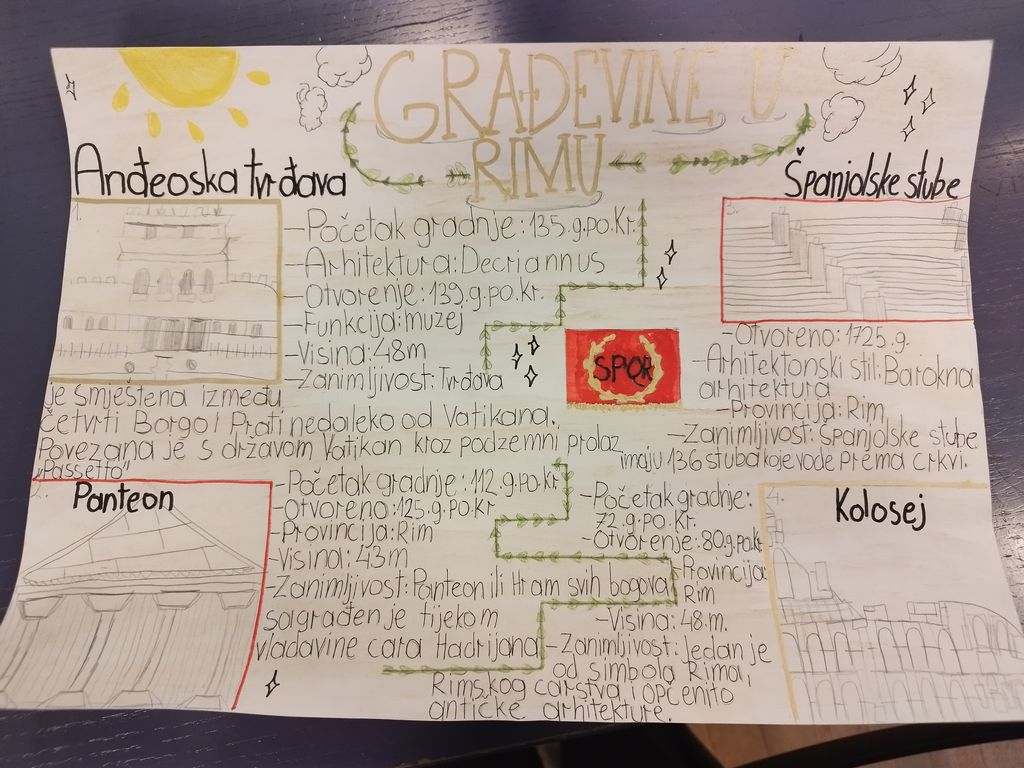 GRAĐEVINE U
RIMU
Anđeoska tvrđava
1.
–Početak gradnje: 135.g.po.Kr.
–Arhitektura: Decriannus
–Otvorenje: 139.g.po.kr.
–Funkcija: muzej
–Visina: 48m
–Zanimljivost: Tvrđava
je smještena između
četvrti Borgo i Prati nedaleko od Vatikana.
Povezana je s državom Vatikan kroz podzemni prolaz
"Passetto"
Španjolske stube
3.
–Otvoreno: 1725.g.
–Arhitektonski stil: Barokna
arhitektura
–Provincija: Rim
–Zanimljivost: Španjolske stube
imaju 136 stuba koje vode prema crkvi.
SPQR
2.
Panteon
–Početak gradnje: 112.g.po.Kr
–Otvoreno: 125.g.po.Kr.
–Provincija: Rim
–Visina: 43m
–Zanimljivost: Panteon ili Hram svih bogova
sagrađen je tijekom
vladavine cara Hadrijana
4.
Kolosej
–Početak gradnje:
72.g.po.Kr.
–Otvorenje: 80g.po.k
–Provincija:
Rim
–Visina: 48.m.
–Zanimljivost: Jedan je
od simbola Rima,
Rimskog carstva i općenito
antičke arhitekture.